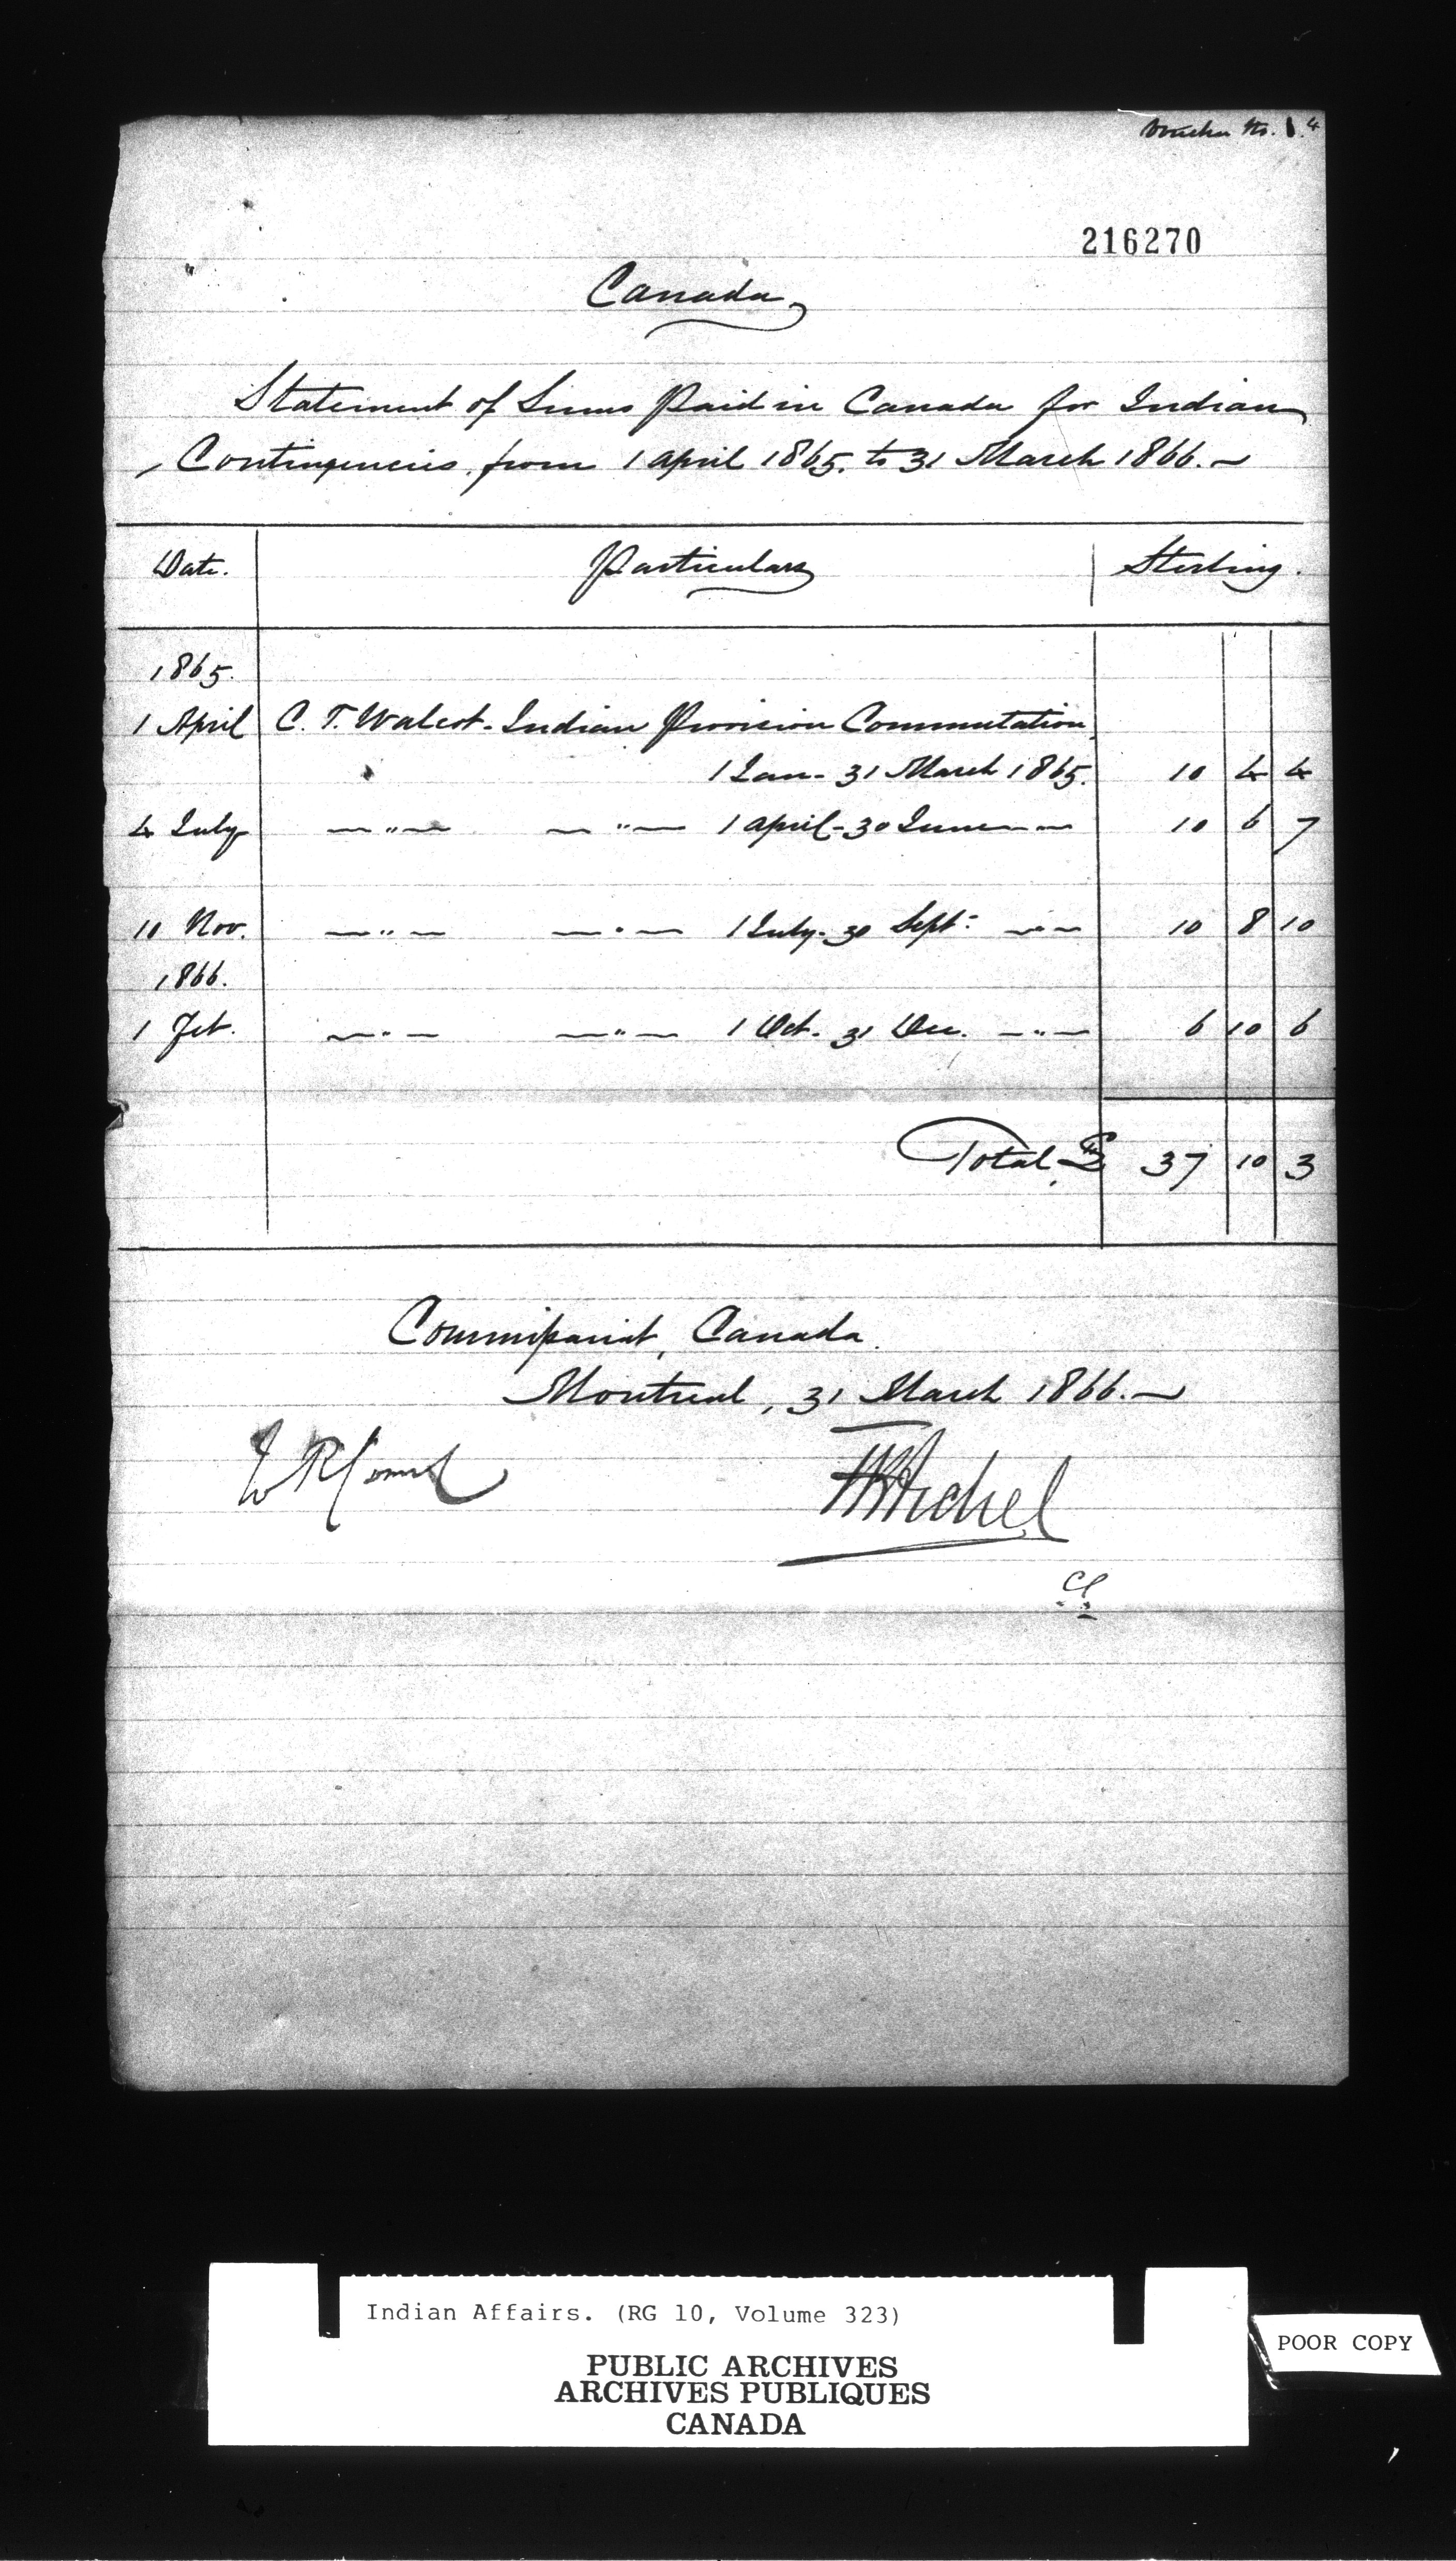 Voucher No. 4
216270
Canada
Statement of Sums Paid in Canada for Indian
Contingencies, from 1 April 1865, to 31 March 1866.
Date. Particulars Sterling.
1865.
1 April C. T. Walcot - Indian Provision Commutation,
1 Jan - 31 March 1865. 10 4 4
4 July — " — — " — 1 April - 30 June — " — 10 6 7
10 Nov. — " — — " — 1 July - 30 Sept: — " — 10 8 10
1866.
1 Feb. — " — — " — 1 Oct. 31 Dec. — " — 6 10 6
Total, £ 37 10 3
Commissariat, Canada.
Montreal, 31 March 1866.
Indian Affairs. (RG 10, Volume 323)
PUBLIC ARCHIVES
ARCHIVES PUBLIQUES
CANADA
POOR COPY